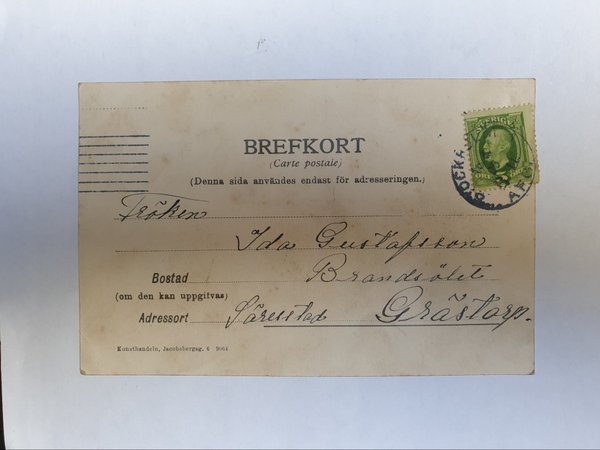 SVERIGE
5
BREFKORT
(Carte postale)
(Denna sida användes endast för adresseringen.)
Fröken
Ida Gustafsson
Bostad
(om den kan uppgifvas)
Adressort Grästorp.
Konsthandeln, Jacobsbergsg. 6 9064